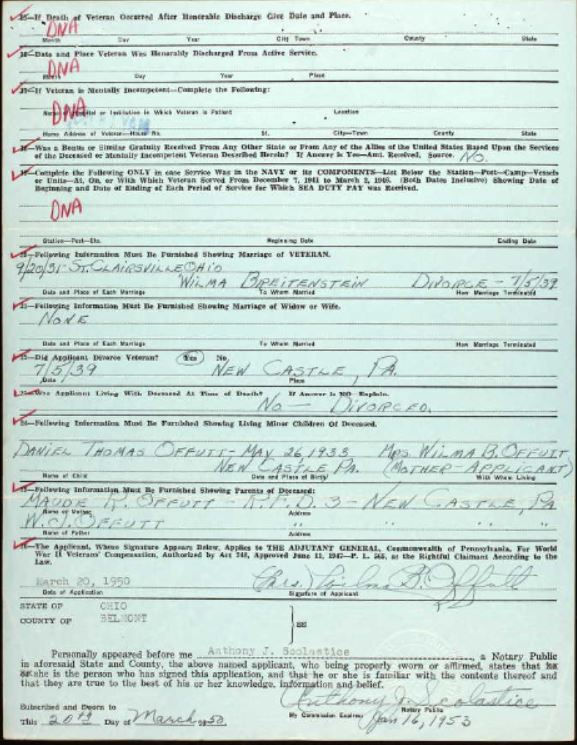 15—If Death of Veteran Occurred After Honorable Discharge Give Date and Place.
DNA
Month Day Year City Town County State
16—Date and Place Veteran Was Honorably Discharged From Active Service.
DNA
Month Day Year Place
17—If Veteran is Mentally Incompetent—Complete the Following:
DNA
Name of Hospital or Institution in Which Veteran is Patient Location
Home Address of Veteran—House No. St. City—Town County State
18—Was a Bonus or Similar Gratuity Received From Any Other State or From Any of the Allies of the United States Based Upon the Services
of the Deceased or Mentally Incompetent Veteran Described Herein? If Answer is Yes—Amt. Received, Source. No.
19—Complete the Following ONLY in case Service Was in the NAVY or its COMPONENTS—List Below the Station—Post—Camp—Vessels
or Units—At, On, or With Which Veteran Served From December 7, 1941 to March 2, 1946. (Both Dates Inclusive) Showing Date of
Beginning and Date of Ending of Each Period of Service for Which SEA DUTY PAY was Received.
DNA
Station—Post—Etc. Beginning Date Ending Date
20—Following Information Must Be Furnished Showing Marriage of VETERAN.
9/20/31 ST. CLAIRSVILLE OHIO
WILMA BREITENSTEIN DIVORCE - 7/5/39
Date and Place of Each Marriage To Whom Married How Marriage Terminated
21—Following Information Must Be Furnished Showing Marriage of Widow or Wife.
NONE
Date and Place of Each Marriage To Whom Married How Marriage Terminated
22—Did Applicant Divorce Veteran? Yes No
7/5/39 NEW CASTLE, PA.
Date Place
23—Was Applicant Living With Deceased At Time of Death? If Answer is NO—Explain.
NO — DIVORCED.
24—Following Information Must Be Furnished Showing Living Minor Children Of Deceased.
DANIEL THOMAS OFFUTT - MAY 26, 1933 MRS. WILMA B. OFFUTT
NEW CASTLE PA. (MOTHER-APPLICANT)
Name of Child Date and Place of Birth With Whom Living
25—Following Information Must Be Furnished Showing Parents of Deceased:
MAUDE R. OFFUTT - R.F.D. 3 - NEW CASTLE, PA
Name of Mother Address
W. OFFUTT " " " "
Name of Father Address
26—The Applicant, Whose Signature Appears Below, Applies to THE ADJUTANT GENERAL, Commonwealth of Pennsylvania, For World
War II Veterans' Compensation, Authorized by Act 748, Approved June 11, 1947—P. L. 565, as the Rightful Claimant According to the
Law.
March 20, 1950 (Mrs.) Wilma B. Offutt
Date of Application Signature of Applicant
STATE OF OHIO
COUNTY OF BELMONT
SS
Personally appeared before me Anthony J. Scolastice, a Notary Public
in aforesaid State and County, the above named applicant, who being properly sworn or affirmed, states that he
or she is the person who has signed this application, and that he or she is familiar with the contents thereof and
that they are true to the best of his or her knowledge, information and belief.
Anthony J. Scolastice
Subscribed and Sworn to Notary Public
This 20th Day of March 1950 My Commission Expires Jan 16, 1953